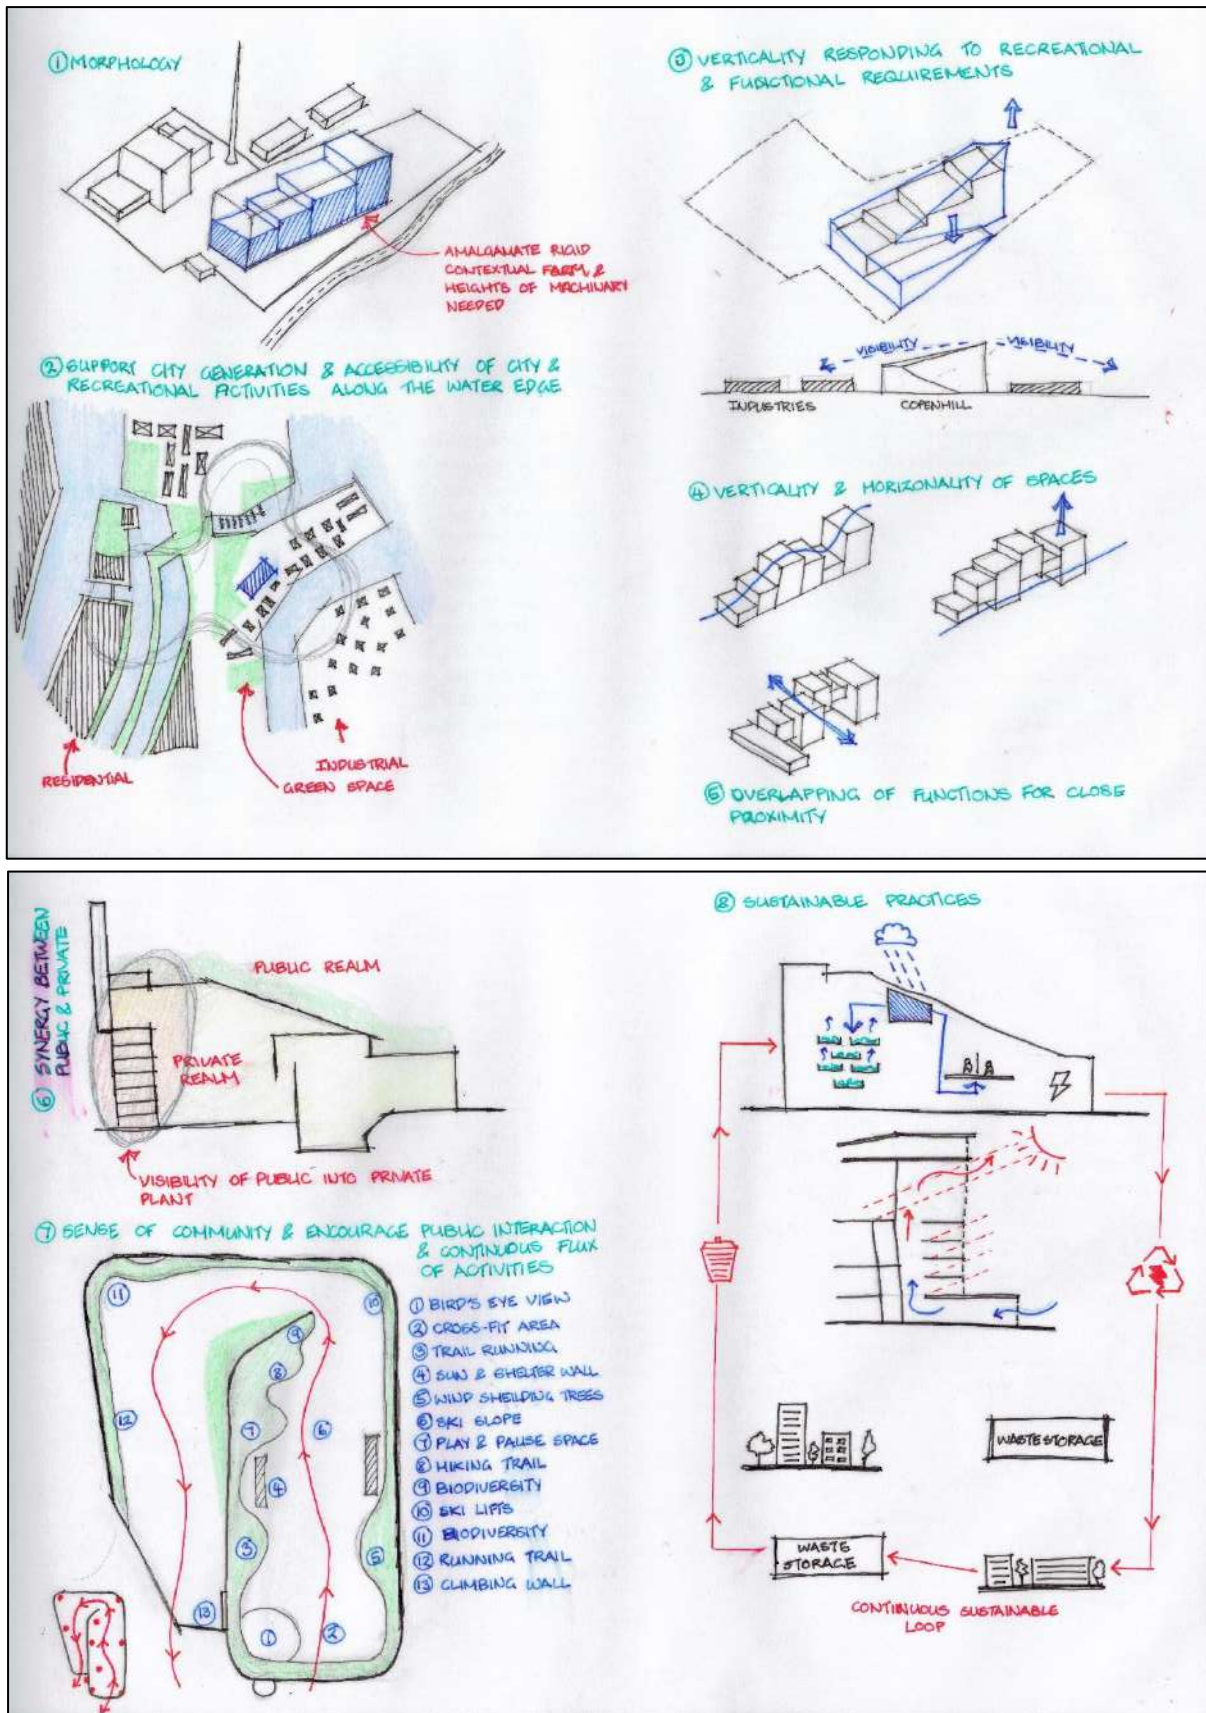 ① MORPHOLOGY
AMALGAMATE RIGID
CONTEXTUAL FORM &
HEIGHTS OF MACHINARY
NEEDED
② SUPPORT CITY GENERATION & ACCESSIBILITY OF CITY &
RECREATIONAL ACTIVITIES ALONG THE WATER EDGE
RESIDENTIAL
INDUSTRIAL
GREEN SPACE
③ VERTICALITY RESPONDING TO RECREATIONAL
& FUNCTIONAL REQUIREMENTS
VISIBILITY
VISIBILITY
INDUSTRIES
COPENHILL
④ VERTICALITY & HORIZONALITY OF SPACES
⑤ OVERLAPPING OF FUNCTIONS FOR CLOSE
PROXIMITY
⑥ SYNERGY BETWEEN
PUBLIC & PRIVATE
PUBLIC REALM
PRIVATE
REALM
VISIBILITY OF PUBLIC INTO PRIVATE
PLANT
⑦ SENSE OF COMMUNITY & ENCOURAGE PUBLIC INTERACTION
& CONTINUOUS FLUX
OF ACTIVITIES
① BIRD'S EYE VIEW
② CROSS-FIT AREA
③ TRAIL RUNNING
④ SUN & SHELTER WALL
⑤ WIND SHEILDING TREES
⑥ SKI SLOPE
⑦ PLAY & PAUSE SPACE
⑧ HIKING TRAIL
⑨ BIODIVERSITY
⑩ SKI LIFTS
⑪ BIODIVERSITY
⑫ RUNNING TRAIL
⑬ CLIMBING WALL
⑪
⑩
⑨
⑧
⑫
⑦
⑥
④
③
⑤
⑬
①
②
⑧ SUSTAINABLE PRACTICES
WASTE STORAGE
WASTE
STORAGE
CONTINUOUS SUSTAINABLE
LOOP